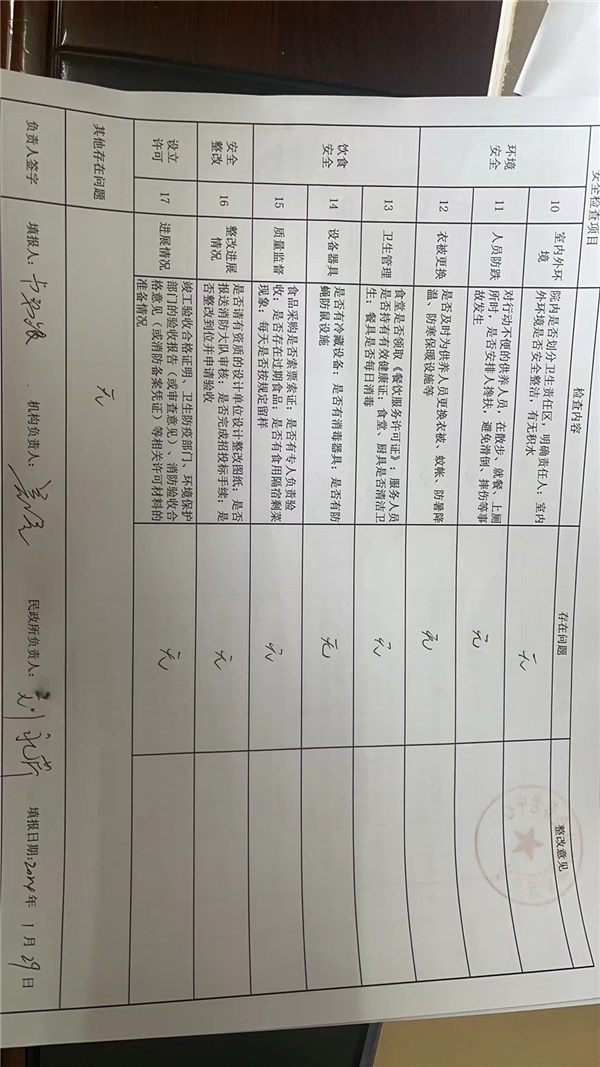 安全检查项目
检查内容
存在问题
整改意见
环境
安全
10
室内外环
境
院内是否划分卫生责任区；明确责任人；室内
外环境是否安全整洁；有无积水
无
11
人员防跌
对行动不便的供养人员，在散步、就餐、上厕
所时，是否安排人搀扶，避免滑倒、摔伤等事
故发生
无
12
衣被更换
是否及时为供养人员更换衣被、蚊帐、防暑降
温、防寒保暖设施等
无
饮食
安全
13
卫生管理
食堂是否领取《餐饮服务许可证》；服务人员
是否持有有效健康证；食堂、厨具是否清洁卫
生；餐具是否每日消毒
无
14
设备器具
是否有冷藏设备；是否有消毒器具；是否有防
蝇防鼠设施
无
15
质量监督
食品采购是否索票索证；是否有专人负责验
收；是否存在过期食品；是否有食用隔宿剩菜
现象；每天是否按规定留样
无
安全
整改
16
整改进展
情况
是否请有资质的设计单位设计整改图纸；是否
报送消防大队审核；是否完成招投标手续；是
否整改到位并申请验收
无
设立
许可
17
进展情况
竣工验收合格证明、卫生防疫部门、环境保护
部门的验收报告（或审查意见）、消防验收合
格意见（或消防备案凭证）等相关许可材料的
准备情况
无
其他存在问题
无
负责人签字
填报人： 机构负责人： 民政所负责人： 填报日期:2024年 1月 29日